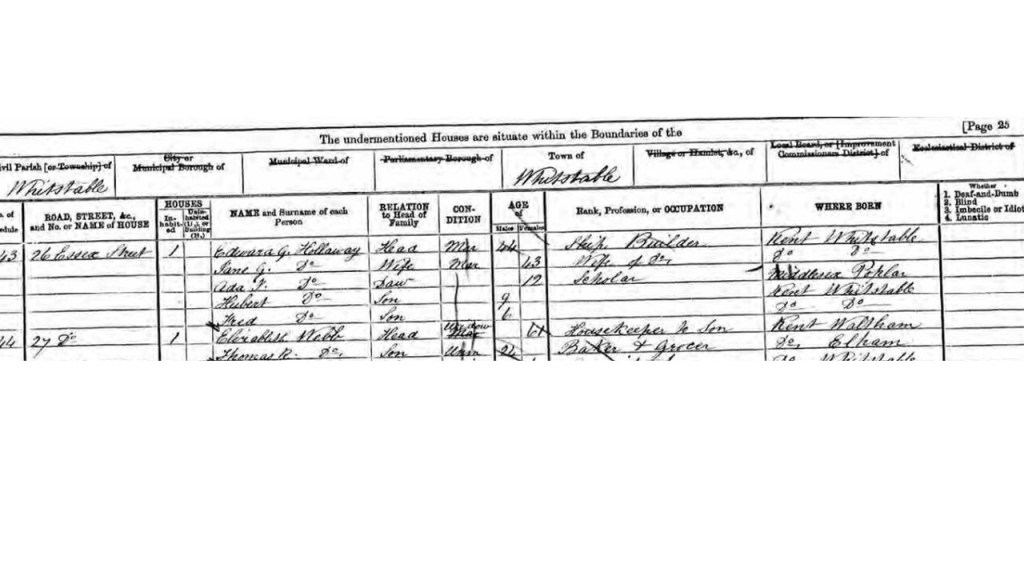 The undermentioned Houses are situate within the Boundaries of the
[Page 25
ivil Parish [or Township] of
City or Municipal Borough of
Municipal Ward of
Parliamentary Borough of
Town of
Village or Hamlet, &c., of
Local Board, or [Improvement Commissioners District] of
Ecclesiastical District of
Whitstable
Whitstable
o. of edule
ROAD, STREET, &c., and No. or NAME of HOUSE
HOUSES
In-habit-ed
Unin-habited (U.), or Building (B.)
NAME and Surname of each Person
RELATION to Head of Family
CON-DITION
AGE of
Males
Females
Rank, Profession, or OCCUPATION
WHERE BORN
Whether
1. Deaf-and-Dumb
2. Blind
3. Imbecile or Idiot
4. Lunatic
43 26 Essex Street 1 Edward G. Hollaway Head Mar 44 Ship Builder Kent Whitstable
Jane G. Do Wife Mar 43 Wife of Do Do Do
Ada F. Do Daw 12 Scholar Middlesex Poplar
Hubert Do Son 9 Kent Whitstable
Fred Do Son 6 Do Do
44 27 Do 1 Elizabeth Webb Head Widow 61 Housekeeper to Son Kent Waltham
Thomas R. Do Son Unm 24 Baker & Grocer Do Elham
Do Whitstable